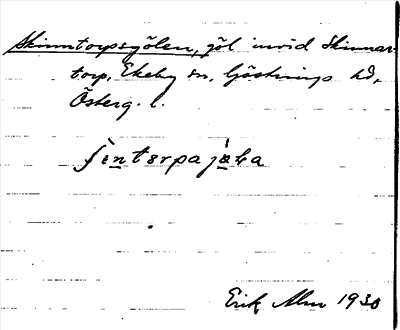 Skinntorpsgölen, göl invid Skinnar-
torp, Ekeby sn, Göstrings hd,
Österg. l.
ʃìnterpajø̀la
Erik Alm 1930